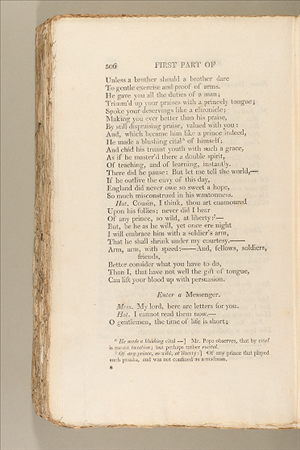 506 FIRST PART OF
Unless a brother should a brother dare
To gentle exercise and proof of arms.
He gave you all the duties of a man;
Trimm'd up your praises with a princely tongue;
Spoke your deservings like a chronicle;
Making you ever better than his praise,
By still dispraising praise, valued with you:
And, which became him like a prince indeed,
He made a blushing cital* of himself;
And chid his truant youth with such a grace,
As if he master'd there a double spirit,
Of teaching, and of learning, instantly.
There did he pause: But let me tell the world,—
If he outlive the envy of this day,
England did never owe so sweet a hope,
So much misconstrued in his wantonness.
Hot. Cousin, I think, thou art enamoured
Upon his follies; never did I hear
Of any prince, so wild, at liberty:—
But, be he as he will, yet once ere night
I will embrace him with a soldier's arm,
That he shall shrink under my courtesy.—
Arm, arm, with speed:—And, fellows, soldiers,
friends,
Better consider what you have to do,
Than I, that have not well the gift of tongue,
Can lift your blood up with persuasion.
Enter a Messenger.
Mess. My lord, here are letters for you.
Hot. I cannot read them now.—
O gentlemen, the time of life is short;
* He made a blushing cital —] Mr. Pope observes, that by cital
is meant taxation; but perhaps rather recital.
Of any prince, so wild, at liberty:] Of any prince that played
such pranks, and was not confined as a madman.